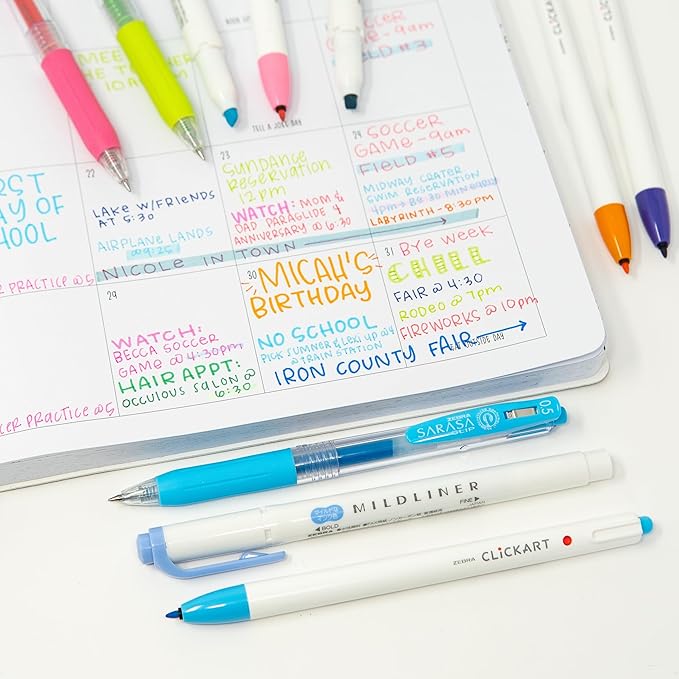 SOCCER
GAME-9am
FIELD #3
MEET
THE
10A
TELL A JOKE DAY
22
LAKE W/FRIENDS
AT 5:30
AIRPLANE LANDS
@9:26
NICOLE IN TOWN
23
SUNDANCE
RESERVATION
12pm
WATCH: MOM &
DAD PARAGLIDE 4
ANNIVERSARY @ 6:30
24
SOCCER
GAME-9am
FIELD #5
MIDWAY CRATER
SWIM RESERVATION
LABYRINTH-8:30PM
OOL
PRACTICE @5
29
WATCH:
BECCA SOCCER
GAME @ 4:30pm
HAIR APPT:
OCCULOUS SALON @
6:30
30
MICAH'S
BIRTHDAY
NO SCHOOL
PICK SUMNER & LEXI UP @4
@ TRAIN STATION
IRON COUNTY FAIR
31
BYE WEEK
CHILL
FAIR @ 4:30
RODEO @ 7pm
FIREWORKS @ 10pm
PRACTICE @5
ZEBRA
SARASA
CLIP
0.5
MILDLINER
◀ BOLD
FINE ▶
ZEBRA
JAPAN
ZEBRA CLiCKART